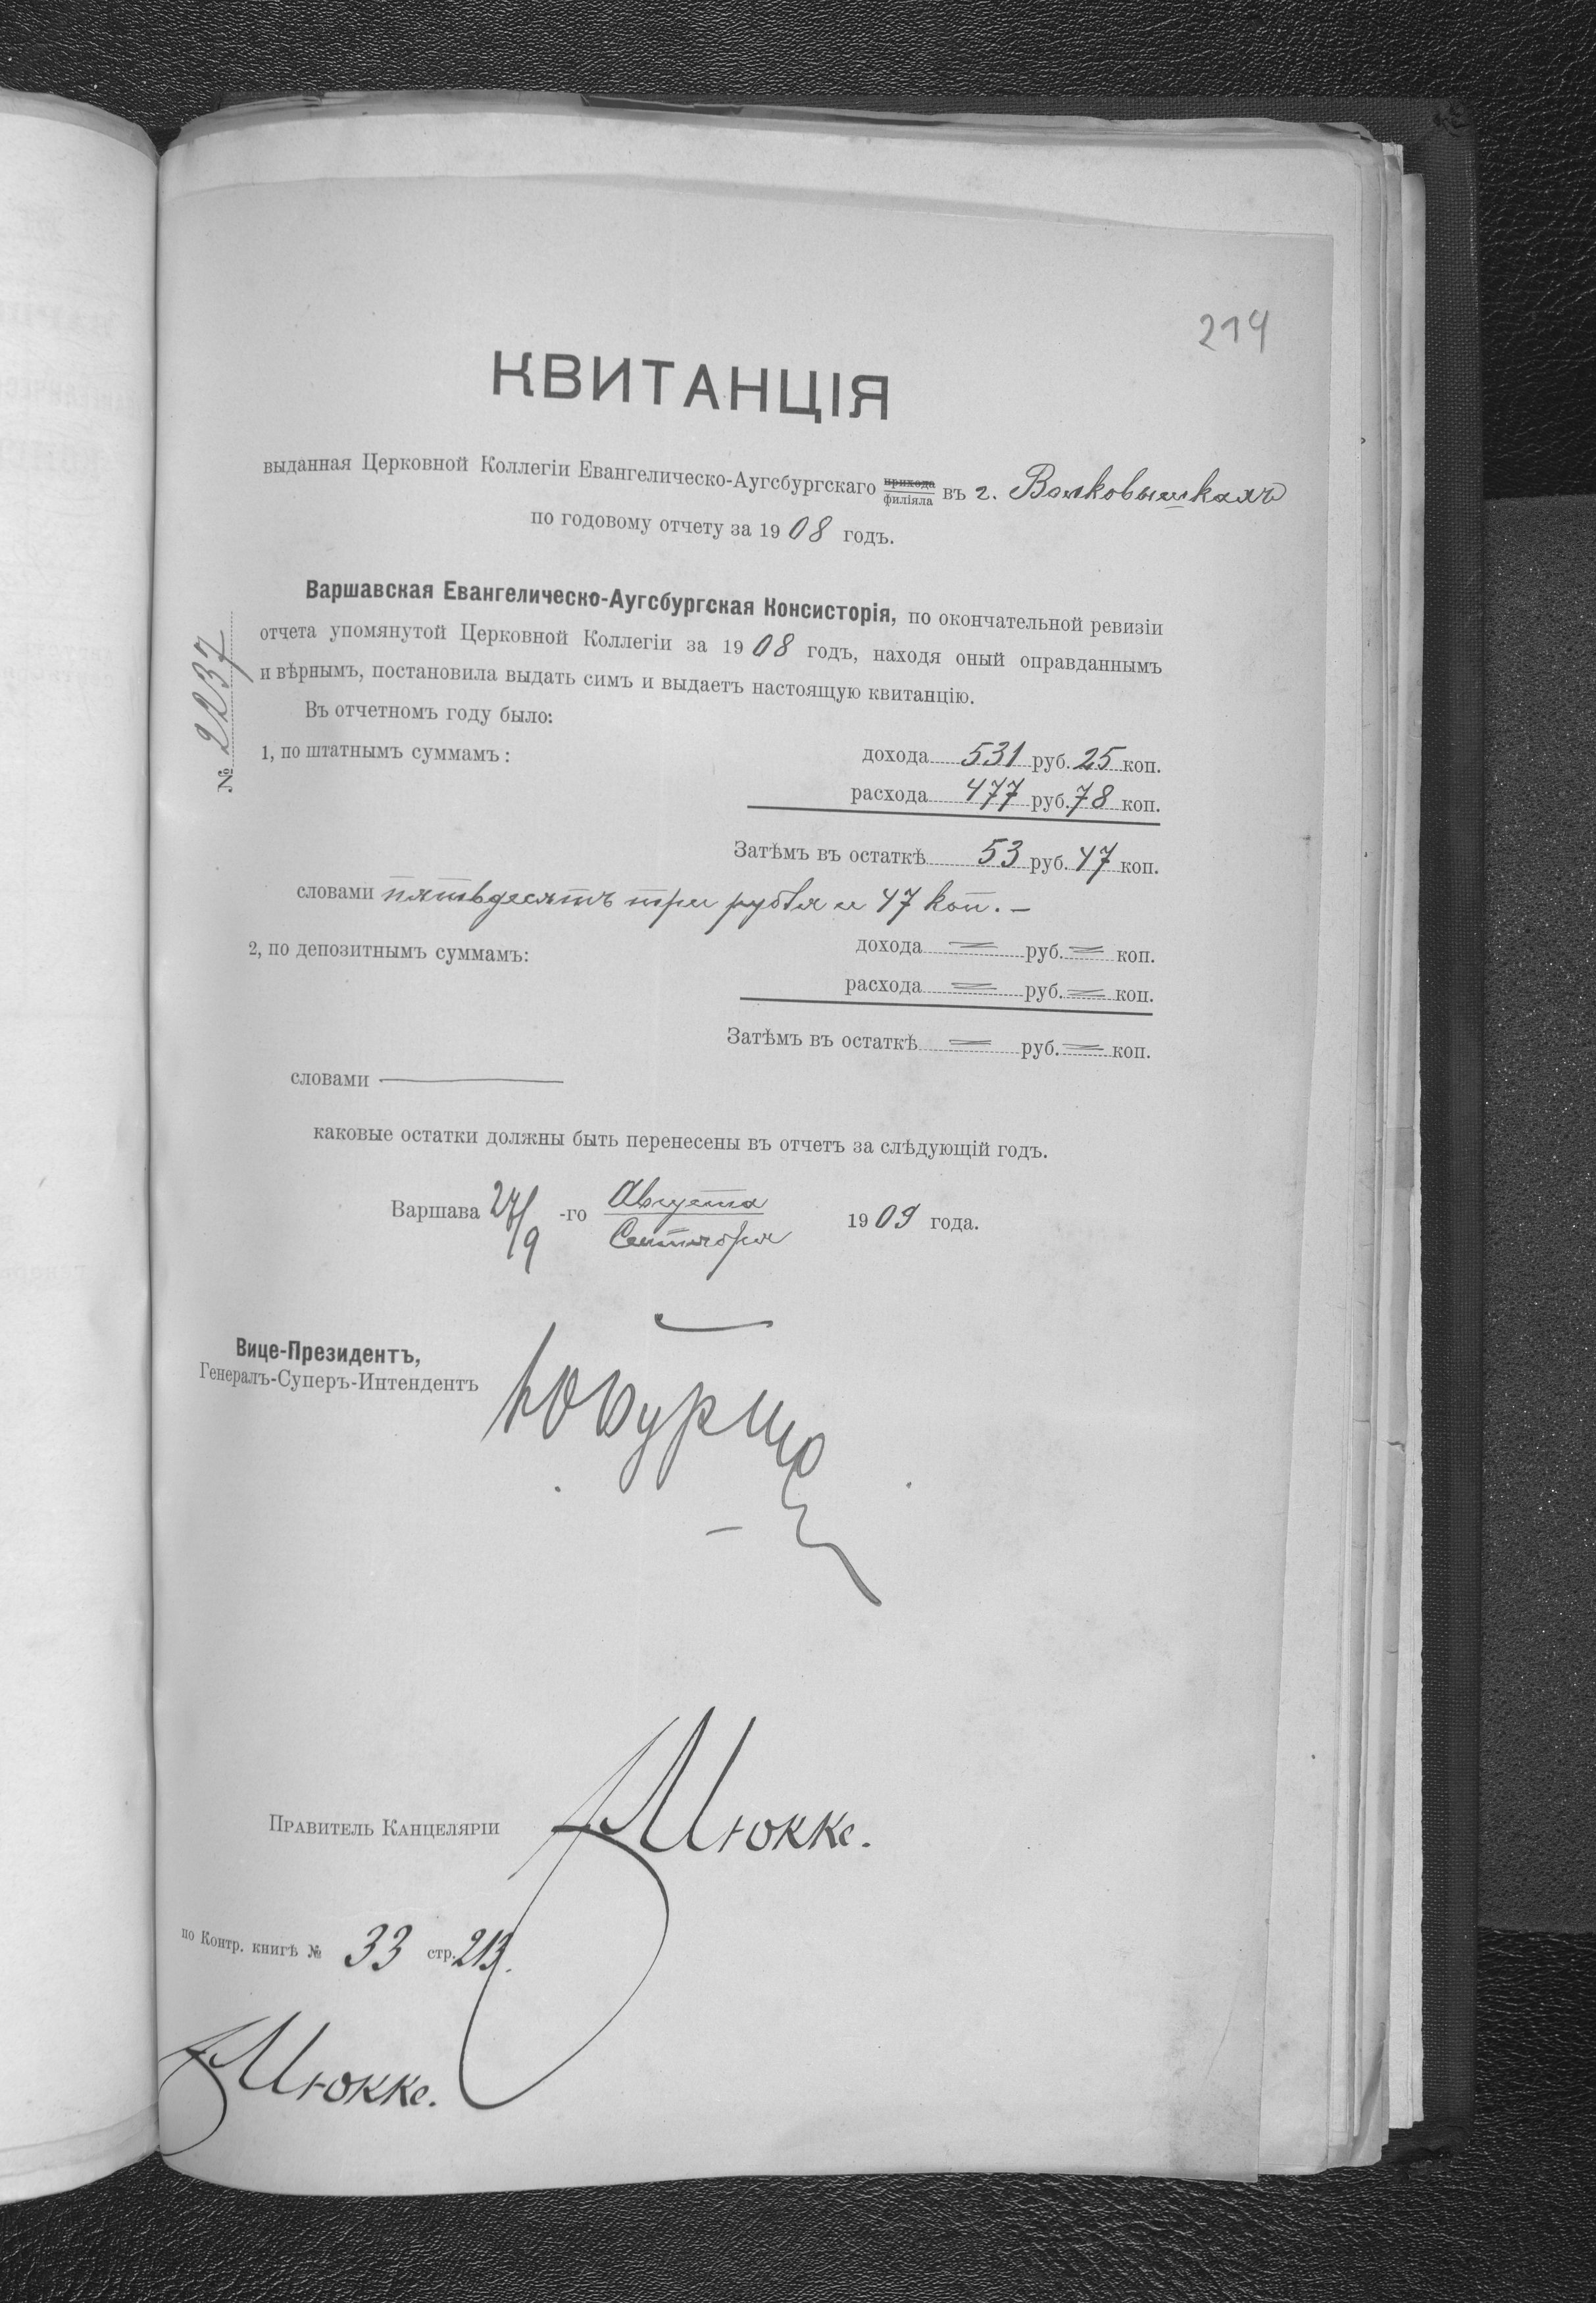 214
КВИТАНЦІЯ
выданная Церковной Коллегіи Евангелическо-Аугсбургскаго прихода филіяла въ г. Волковышкахъ
по годовому отчету за 1908 годъ.
Варшавская Евангелическо-Аугсбургская Консисторія, по окончательной ревизіи
отчета упомянутой Церковной Коллегіи за 1908 годъ, находя оный оправданнымъ
и вѣрнымъ, постановила выдать симъ и выдаетъ настоящую квитанцію.
№ 2237
Въ отчетномъ году было:
1, по штатнымъ суммамъ: дохода 531 руб. 25 коп.
расхода 477 руб. 78 коп.
Затѣмъ въ остаткѣ 53 руб. 47 коп.
словами пятьдесятъ три рубля и 47 коп. –
2, по депозитнымъ суммамъ: дохода = руб. = коп.
расхода = руб. = коп.
Затѣмъ въ остаткѣ = руб. = коп.
словами —
каковые остатки должны быть перенесены въ отчетъ за слѣдующій годъ.
Варшава 27/9 -го Августа Сентября 1909 года.
Вице-Президентъ,
Генералъ-Суперъ-Интендентъ
Правитель Канцеляріи Мюкке.
по Контр. книгѣ № 33 стр. 213.
Мюкке.